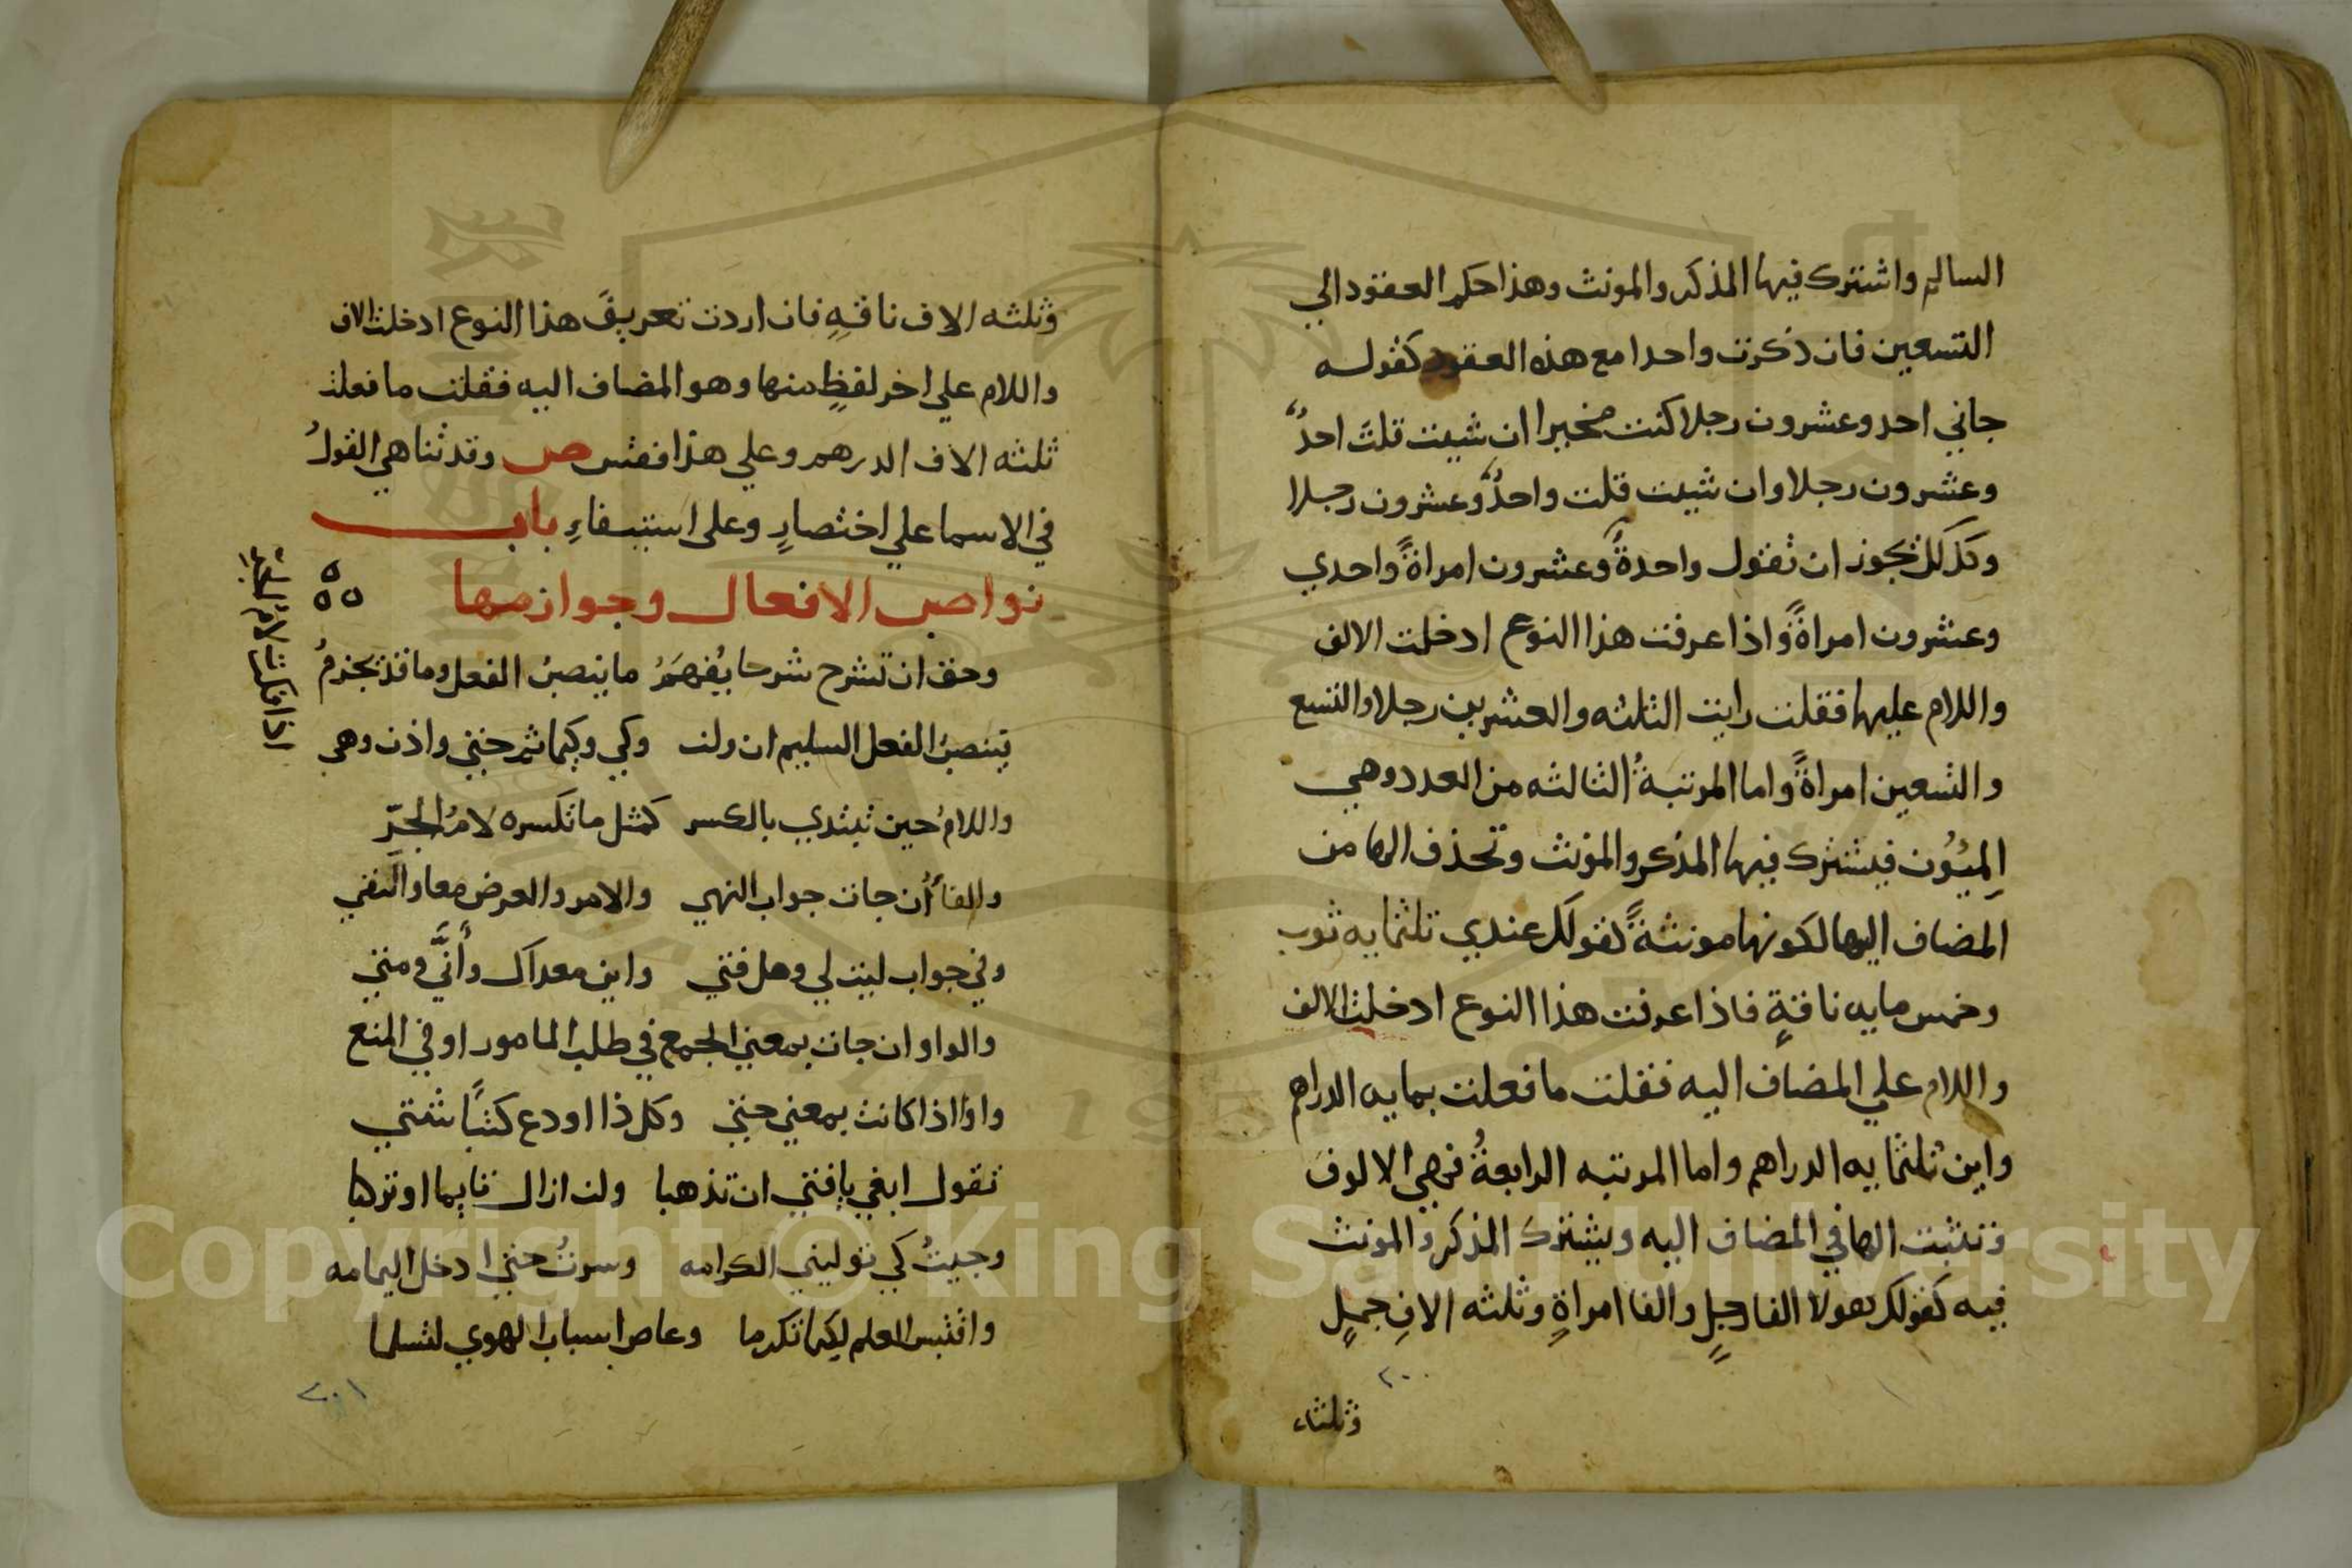 السالم واشترك فيها المذكر والمونث وهذا حكم العقود الي
التسعين فان ذكرت واحدا مع هذه العقود كقوله
جاني احد وعشرون رجلا كنت مخيرا ان شيت قلت احدٌ
وعشرون رجلا وان شيت قلت واحدٌ وعشرون رجلا
وكذلك يجوز ان تقول واحدةٌ وعشرون امراةً واحدي
وعشرون امراةً واذا عرفت هذا النوع ادخلت الالف
واللام عليها فقلت رايت الثلثه والعشرين رجلا والتسع
والتسعين امراةً واما المرتبةُ الثالثه من العدد وهي
المِيُون فيشترك فيها المذكر والمونث وتحذف الها من
المضاف اليها لكونها مونثةً كقولك عندي ثلثمايه ثوب
وخمس مايه ناقةٍ فاذا عرفت هذا النوع ادخلت الالف
واللام علي المضاف اليه فقلت ما فعلت بمايه الدراهم
واين ثلثمايه الدراهم واما المرتبه الرابعةُ فهي الالوف
وتثبت الها في المضاف اليه ويشترك المذكر والمونث
فيه كقولك هولا الفا رجلٍ والفا امراةٍ وثلثه الافِ جملٍ
٢٠٠
وثلثه
وثلثه الاف ناقةٍ فان اردت تعريفَ هذا النوع ادخلت الالف
واللام علي اخر لفظٍ منها وهو المضاف اليه فقلت ما فعلت
ثلثه الاف الدرهم وعلي هذا فقس ص وقد تناهي القولُ
في الاسما علي اختصارٍ وعلي استيفاءِ باب
نواصب الافعال وجوازمها
وحق ان تشرح شرحا يُفهَمُ ما ينصبُ الفعل وما قد يجزمُ
تنصبُ الفعل السليم ان ولن وكي وكيما ثم حتي واذن وهي
واللامُ حين تبتدي بالكسر كمثل ما تكسره لامُ الجرّ
والفا ان جات جواب النهي والامر والعرض معا والنفي
وفي جواب ليت لي وهل فتي واين مغداك وأنَّي ومتي
والواو ان جات بمعني الجمع في طلب المامور او في المنع
واو اذا كانت بمعني حتي وكل ذا اودع كتبًا شتي
تقول ابغي يا فتي ان تذهبا ولن ازال قايما او تركبا
وجيتُ كي توليني الكرامه وسرتُ حتي ادخل اليمامه
واقتبس العلم لكيما تكرما وعاص اسباب الهوي لتسلما
اذا فكرت لام الجرِ
٢٠١
Copyright © King Saud University
1957